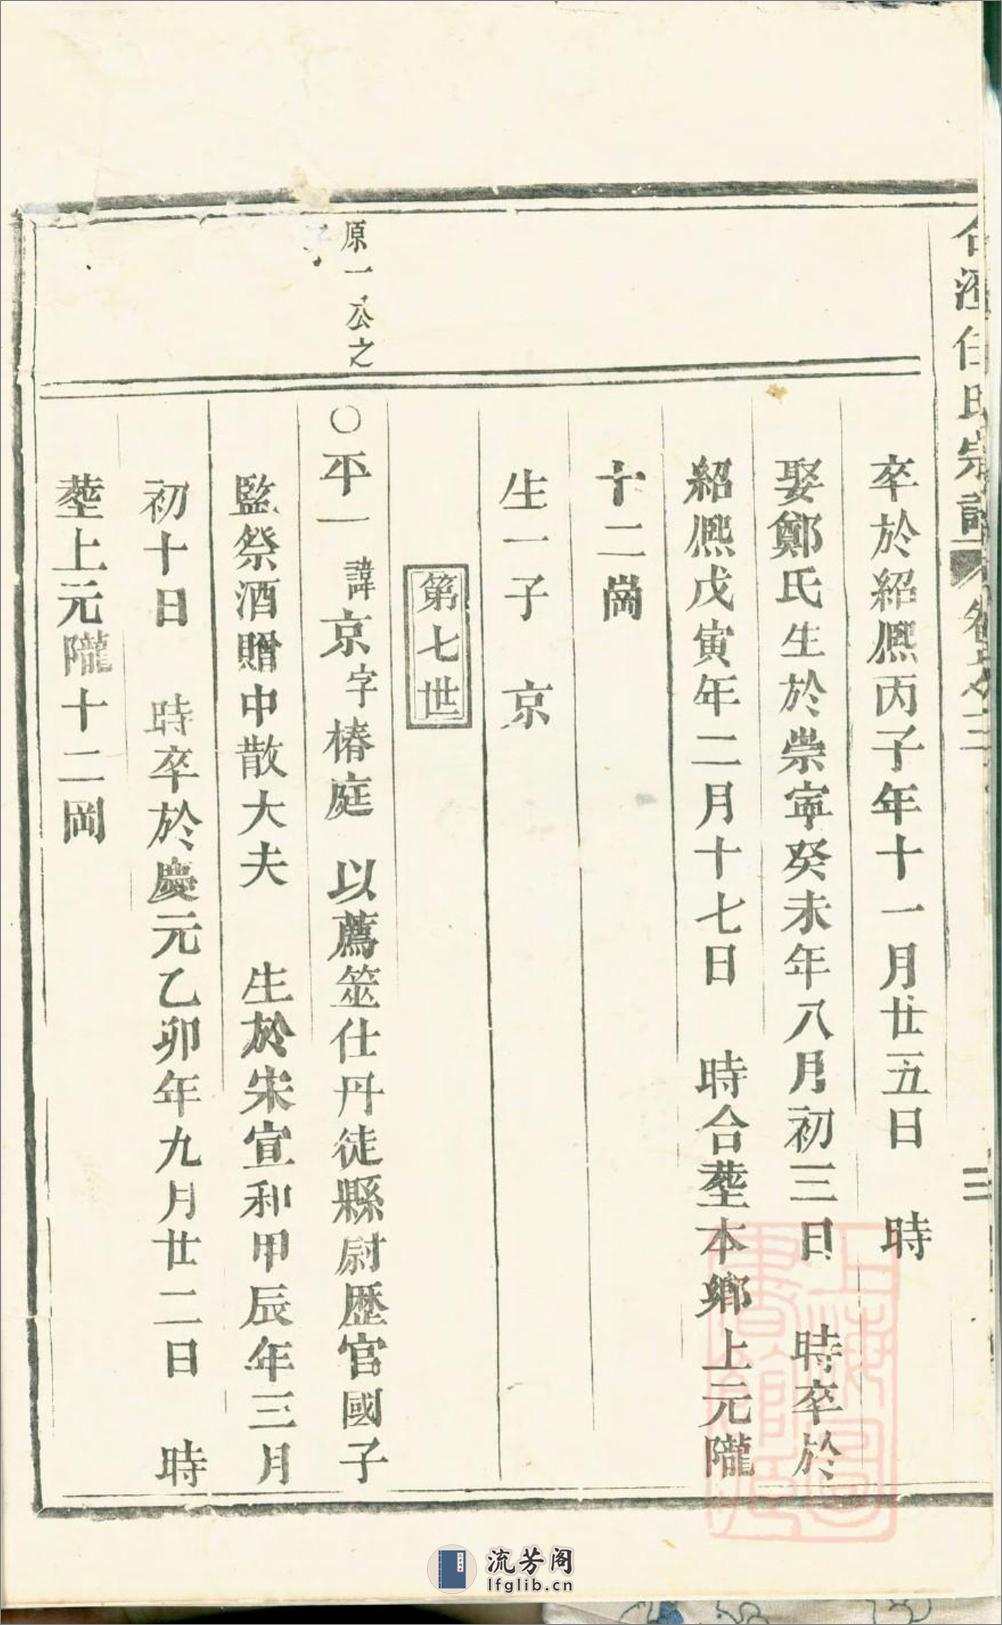 任氏宗譜
三
卒於紹熈丙子年十一月廿五日　時
娶鄭氏生於崇寧癸未年八月初三日　時卒於
紹熈戊寅年二月十七日　時合塟本鄉上元隴
十二崗
生一子　京
第七世
原一公之
子
○平一諱京字椿庭　以薦筮仕丹徒縣尉歷官國子
監祭酒贈中散大夫　生於宋宣和甲辰年三月
初十日　時卒於慶元乙卯年九月廿二日　時
塟上元隴十二岡
上海圖書館藏
流芳阁
lfglib.cn